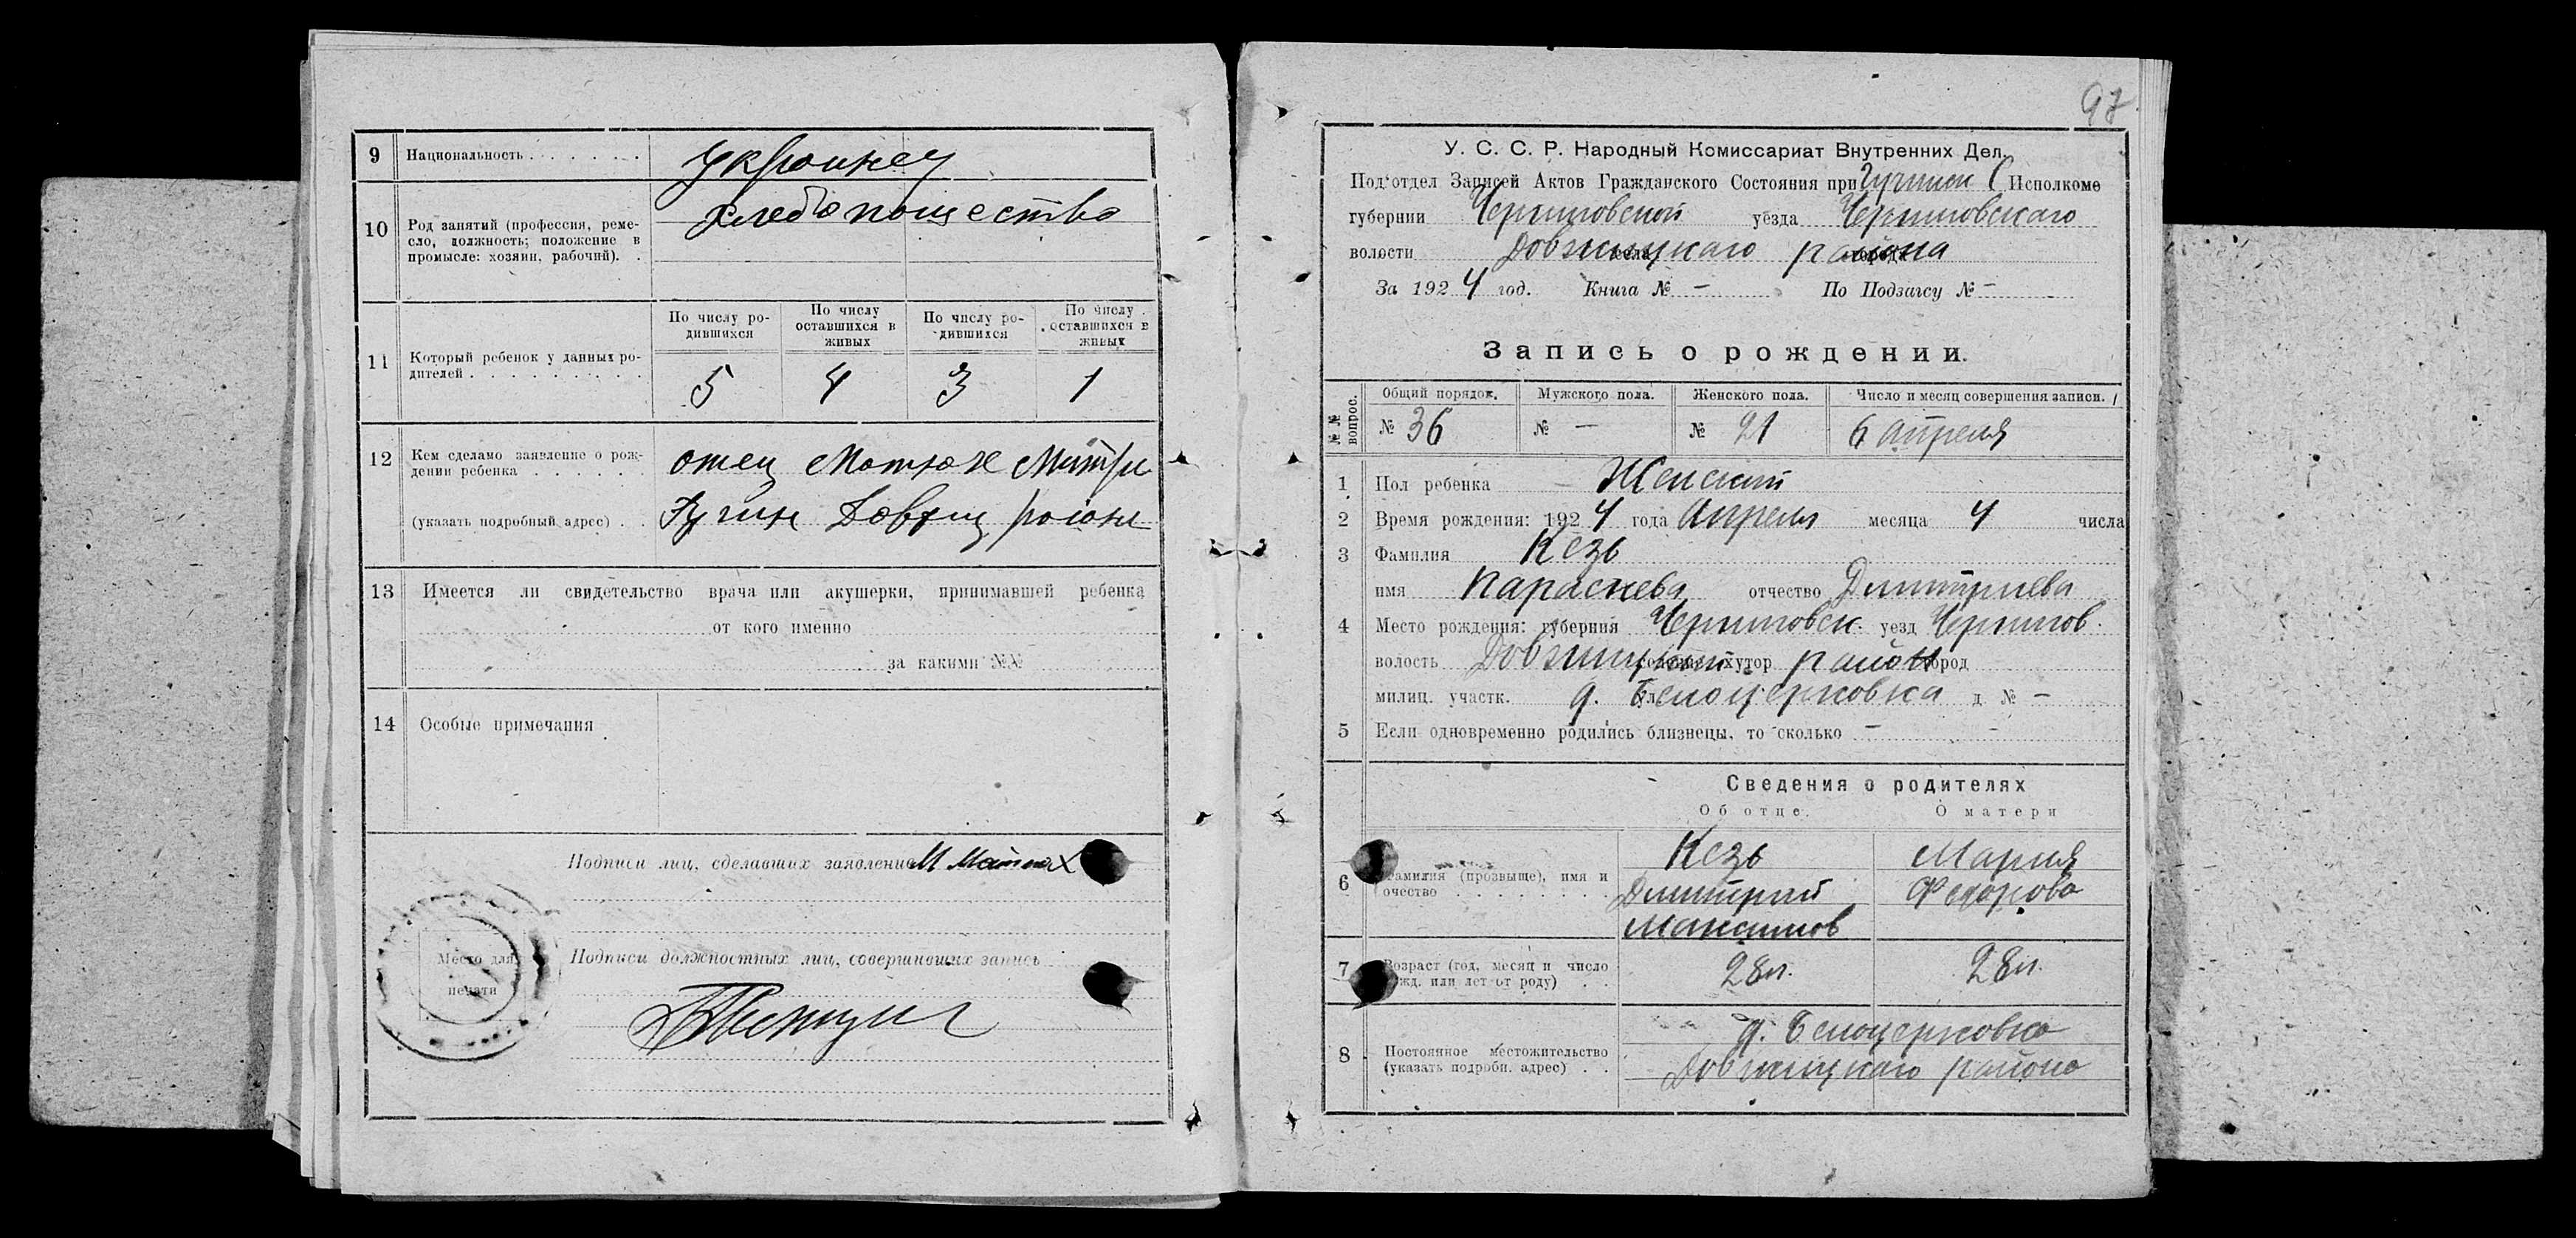 9 Национальность . . . . . . . украинец
10 Род занятий (профессия, реме-
сло, должность; положение в
промысле: хозяин, рабочий). . хлебопашество
11 Который ребенок у данных ро-
дителей . . . . . . . . . .
По числу ро-
дившихся
По числу
оставшихся в
живых
По числу ро-
дившихся
По числу
оставшихся в
живых
5 4 3 1
12 Кем сделано заявление о рож-
дении ребенка . . . . . отец Матюх Митри
(указать подробный адрес) . . Гучин Довжиц района
13 Имеется ли свидетельство врача или акушерки, принимавшей ребенка
от кого именно
за какими №№
14 Особые примечания
Подписи лиц, сделавших заявление М Матюх
Место для
печати
Подписи должностных лиц, совершивших запись
97
У. С. С. Р. Народный Комиссариат Внутренних Дел.
Под'отдел Записей Актов Гражданского Состояния при Гучинск С Исполкоме
губернии Черниговской уезда Черниговскаго
волости Довжицкаго села района города
За 1924 год. Книга № - По Подзагсу № -
Запись о рождении.
№№ вопрос.
Общий порядок. Мужского пола. Женского пола. Число и месяц совершения записи.
№ 36 № - № 21 6 апреля
1 Пол ребенка Женский
2 Время рождения: 1924 года Апреля месяца 4 числа
3 Фамилия Кезь
имя Параскева отчество Димитриева
4 Место рождения: губерния Черниговск. уезд Чернигов.
волость Довжицкий селение хутор район город
милиц. участк. д. Белоцерковка д. № -
5 Если одновременно родились близнецы, то сколько -
Сведения о родителях
Об отце. О матери
6 Фамилия (прозвыще), имя и
очество . . . . . . . .
Кезь
Димитрий
Максимов
Мария
Федорова
7 Возраст (год, месяц и число
рожд. или лет от роду) . . 28 л. 28 л.
8 Постоянное местожительство
(указать подробн. адрес) . .
д. Белоцерковка
Довжицкаго района